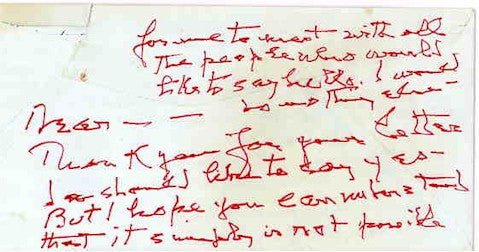 for me to meet with all
the people who would
like to say hello. I would
do nothing else -
Dear — —
Thank you for your letter
I should like to say yes -
But I hope you can understand
that it simply is not possible